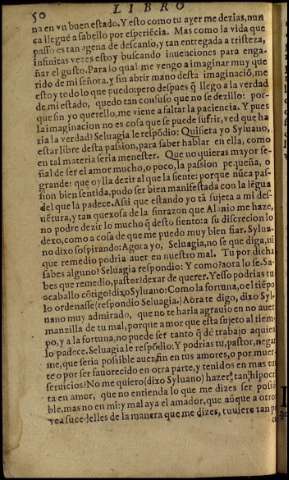 50
LIBRO
na en vn buen estado. Y esto como tu ayer me dezias, nun
ca llegué a sabello por esperiēcia. Mas como la vida que
passo es tan agena de descanso, y tan entregada a tristeza,
infinitas vezes estoy buscando inuenciones para enga-
ñar el gusto. Para lo qual me vengo a imaginar muy que
rido de mi señora, y sin abrir mano desta imaginaciō, me
estoy todo lo que puedo: pero despues q̄ llego a la verdad
de mi estado, quedo tan confuso que no sè dezillo: por-
que sin yo quererlo, me viene a faltar la paciencia. Y pues
la imaginacion no es cosa que se puede sufrir, ved que ha
ria la verdad? Seluagia le respōdio: Quisiera yo Syluano,
estar libre desta passion, para saber hablar en ella, como
en tal materia seria menester. Que no quieras mayor se-
ñal de ser el amor mucho, o poco, la passion pequeña, o
grande: que oylla dezir al que la siente: porque nūca pas-
sion bien sentida, pudo ser bien manifestada con la lēgua
del que la padece. Assi que estando yo tā sujeta a mi des-
uētura, y tan quexosa de la sinrazon que Alanio me haze,
no podre dezir lo mucho q̄ desto siento: a su discrecion lo
dexo, como a cosa de que me puedo muy bien fiar. Sylua-
no dixo sospirando: Agora yo, Seluagia, no sè que diga, ni
que remedio podria auer en nuestro mal. Tu por dicha
sabes alguno? Seluagia respondio: Y como hora lo sè. Sa-
bes que remedio, pastor? dexar de querer. Y esso podrias tu
acaballo cōtigo? dixo Syluano: Como la fortuna, o el tiēpo
lo ordenasse (respondio Seluagia.) Aora te digo, dixo Syl-
uano muy admirado, que no te haria agrauio en no auer
manzilla de tu mal, porque amor que esta sujeto al tiem-
po, y a la fortuna, no puede ser tanto q̄ dè trabajo a quien
lo padece. Seluagia le respōdio: Y podrias tu, pastor, negar
me, que seria possible auer fin en tus amores, o por muer-
te o por ser fauorecido en otra parte, y tenidos en mas tus
seruicios? No me quiero (dixo Syluano) hazer tan hipocri
ta en amor, que no entienda lo que me dizes ser possi-
ble, mas no en mi: y mal aya el amador, que aūque a otros
vea sucedelles de la manera que me dizes, tuuiere tan po